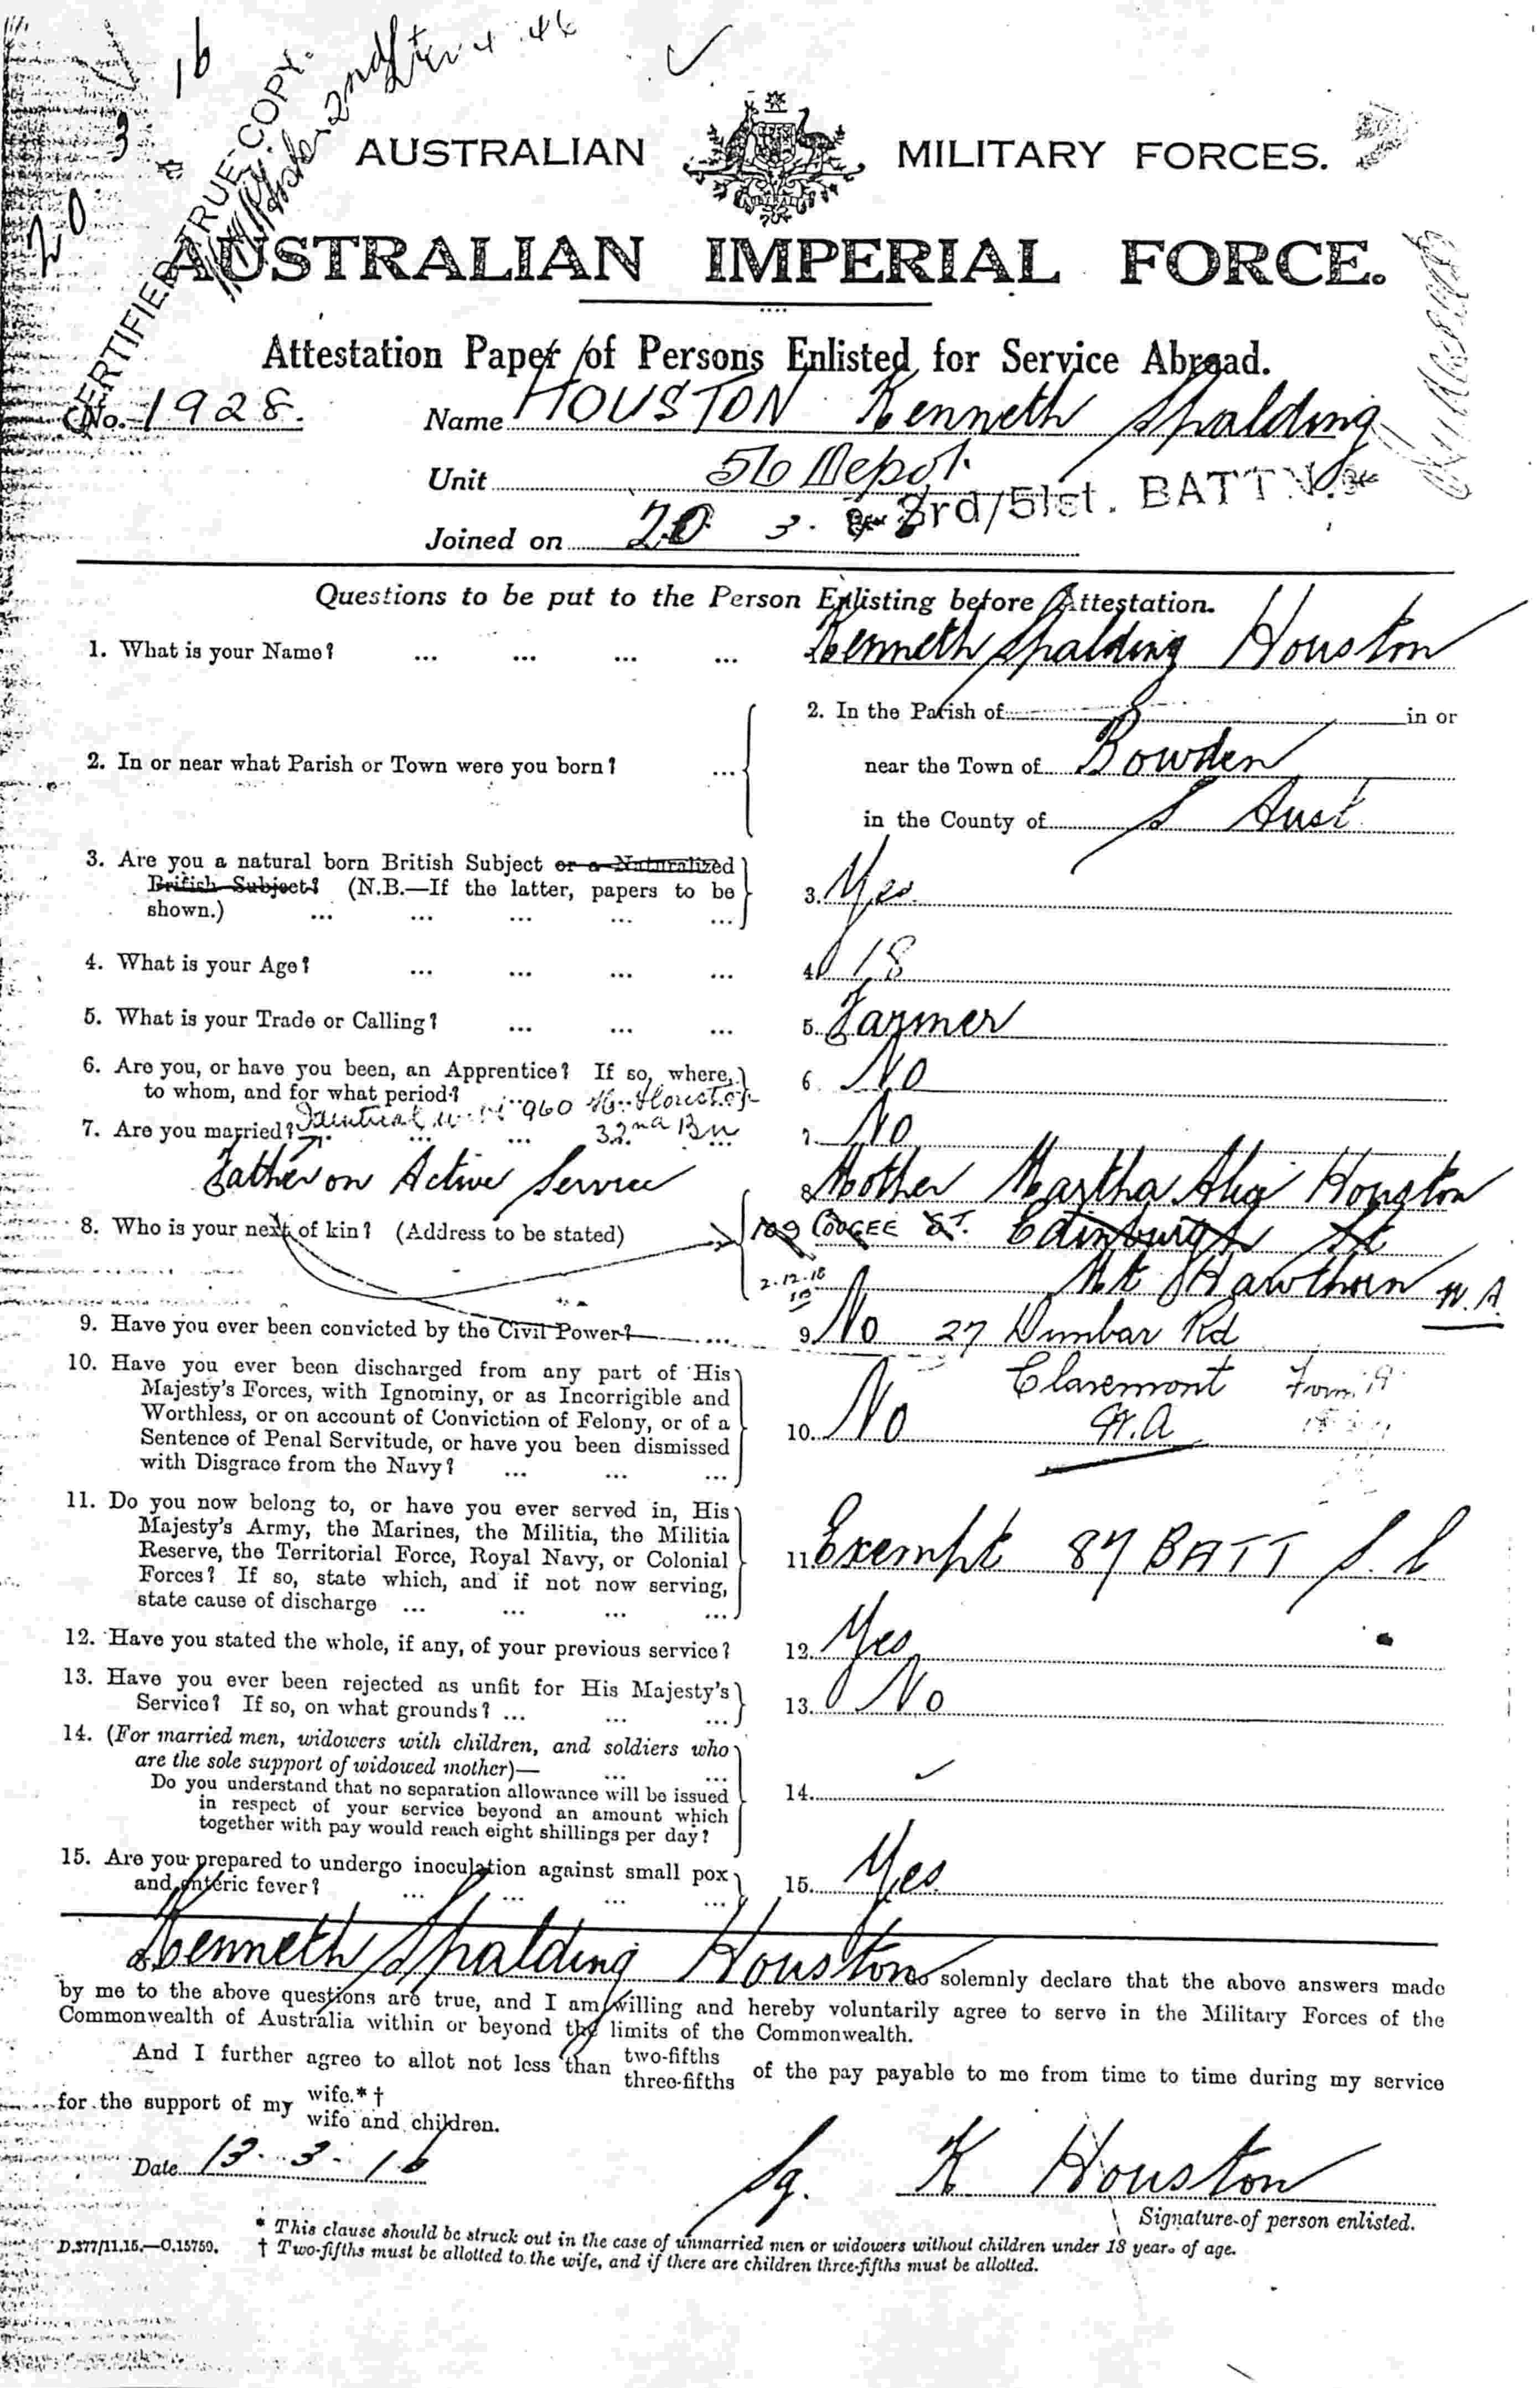 16
3
20
CERTIFIED TRUE COPY.
AUSTRALIAN MILITARY FORCES.
AUSTRALIAN IMPERIAL FORCE.
Attestation Paper of Persons Enlisted for Service Abroad.
No. 1928. Name HOUSTON Kenneth Spalding
Unit 56 Depot
3rd/51st. BATTN.
Joined on 20 3.
Questions to be put to the Person Enlisting before Attestation.
1. What is your Name? ... ... ... ... Kenneth Spalding Houston
2. In the Parish of in or
2. In or near what Parish or Town were you born? ... near the Town of Bowden
in the County of S Aust
3. Are you a natural born British Subject or a Naturalized
British Subject? (N.B.—If the latter, papers to be
shown.) ... ... ... ... ... 3. Yes.
4. What is your Age? ... ... ... ... 4. 18
5. What is your Trade or Calling? ... ... ... 5. Farmer
6. Are you, or have you been, an Apprentice? If so, where,
to whom, and for what period? 6. No
960 Houston
7. Are you married? ... ... 32nd Bn 7. No
Father on Active Service
8 Mother Martha Houston
8. Who is your next of kin? (Address to be stated) 109 COOGEE ST. Edinburgh St
2.12.18 Mt Hawthorn W.A.
9. Have you ever been convicted by the Civil Power? ... 9. No 27 Dunbar Rd
Claremont
W.A
10. Have you ever been discharged from any part of His
Majesty's Forces, with Ignominy, or as Incorrigible and
Worthless, or on account of Conviction of Felony, or of a
Sentence of Penal Servitude, or have you been dismissed
with Disgrace from the Navy? ... ... ... 10. No
11. Do you now belong to, or have you ever served in, His
Majesty's Army, the Marines, the Militia, the Militia
Reserve, the Territorial Force, Royal Navy, or Colonial
Forces? If so, state which, and if not now serving,
state cause of discharge ... ... ... ... 11 Exempt 87 BATT
12. Have you stated the whole, if any, of your previous service? 12. Yes
13. Have you ever been rejected as unfit for His Majesty's
Service? If so, on what grounds? ... ... ... 13. No
14. (For married men, widowers with children, and soldiers who
are the sole support of widowed mother)— ... ...
Do you understand that no separation allowance will be issued
in respect of your service beyond an amount which
together with pay would reach eight shillings per day? 14.
15. Are you prepared to undergo inoculation against small pox
and enteric fever? ... ... ... ... 15. Yes.
Kenneth Spalding Houston do solemnly declare that the above answers made
by me to the above questions are true, and I am willing and hereby voluntarily agree to serve in the Military Forces of the
Commonwealth of Australia within or beyond the limits of the Commonwealth.
And I further agree to allot not less than two-fifths
three-fifths of the pay payable to me from time to time during my service
for the support of my wife.*†
wife and children.
Date 13-3-16 Sg. K Houston
Signature of person enlisted.
* This clause should be struck out in the case of unmarried men or widowers without children under 18 years of age.
D.377/11.15.—C.15759. † Two-fifths must be allotted to the wife, and if there are children three-fifths must be allotted.